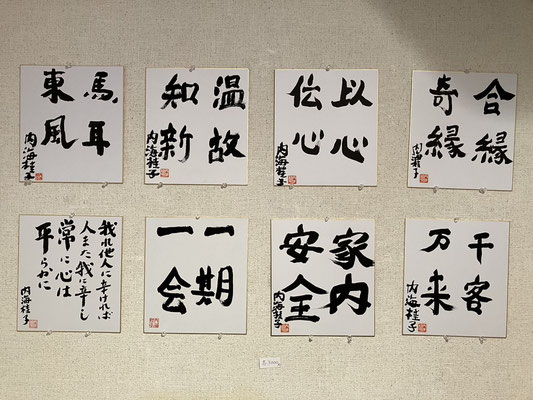 合縁
奇縁
内海桂子
以心
伝心
内海桂子
温故
知新
内海桂子
馬耳
東風
内海桂子
千客
万来
内海桂子
家内
安全
内海桂子
一期
一会
我れ他人に辛ければ
人また我に辛し
常に心は
平らかに
内海桂子